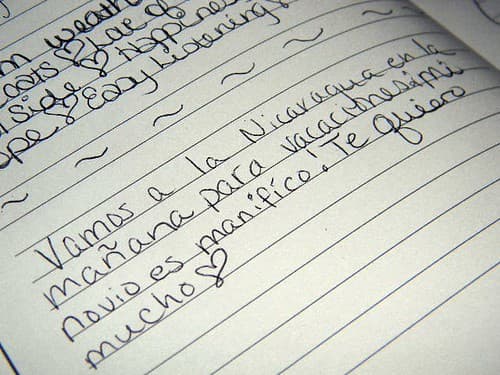 weath
cats ♡ Lac of
Side ♡ Happines
ope ♡ Easy Listening
~ ~ ~ ~ ~ ~
Vamos a la Nicaragua en la
mañana para vacaciones¡mi
novio es manifico! Te quiero
mucho ♡